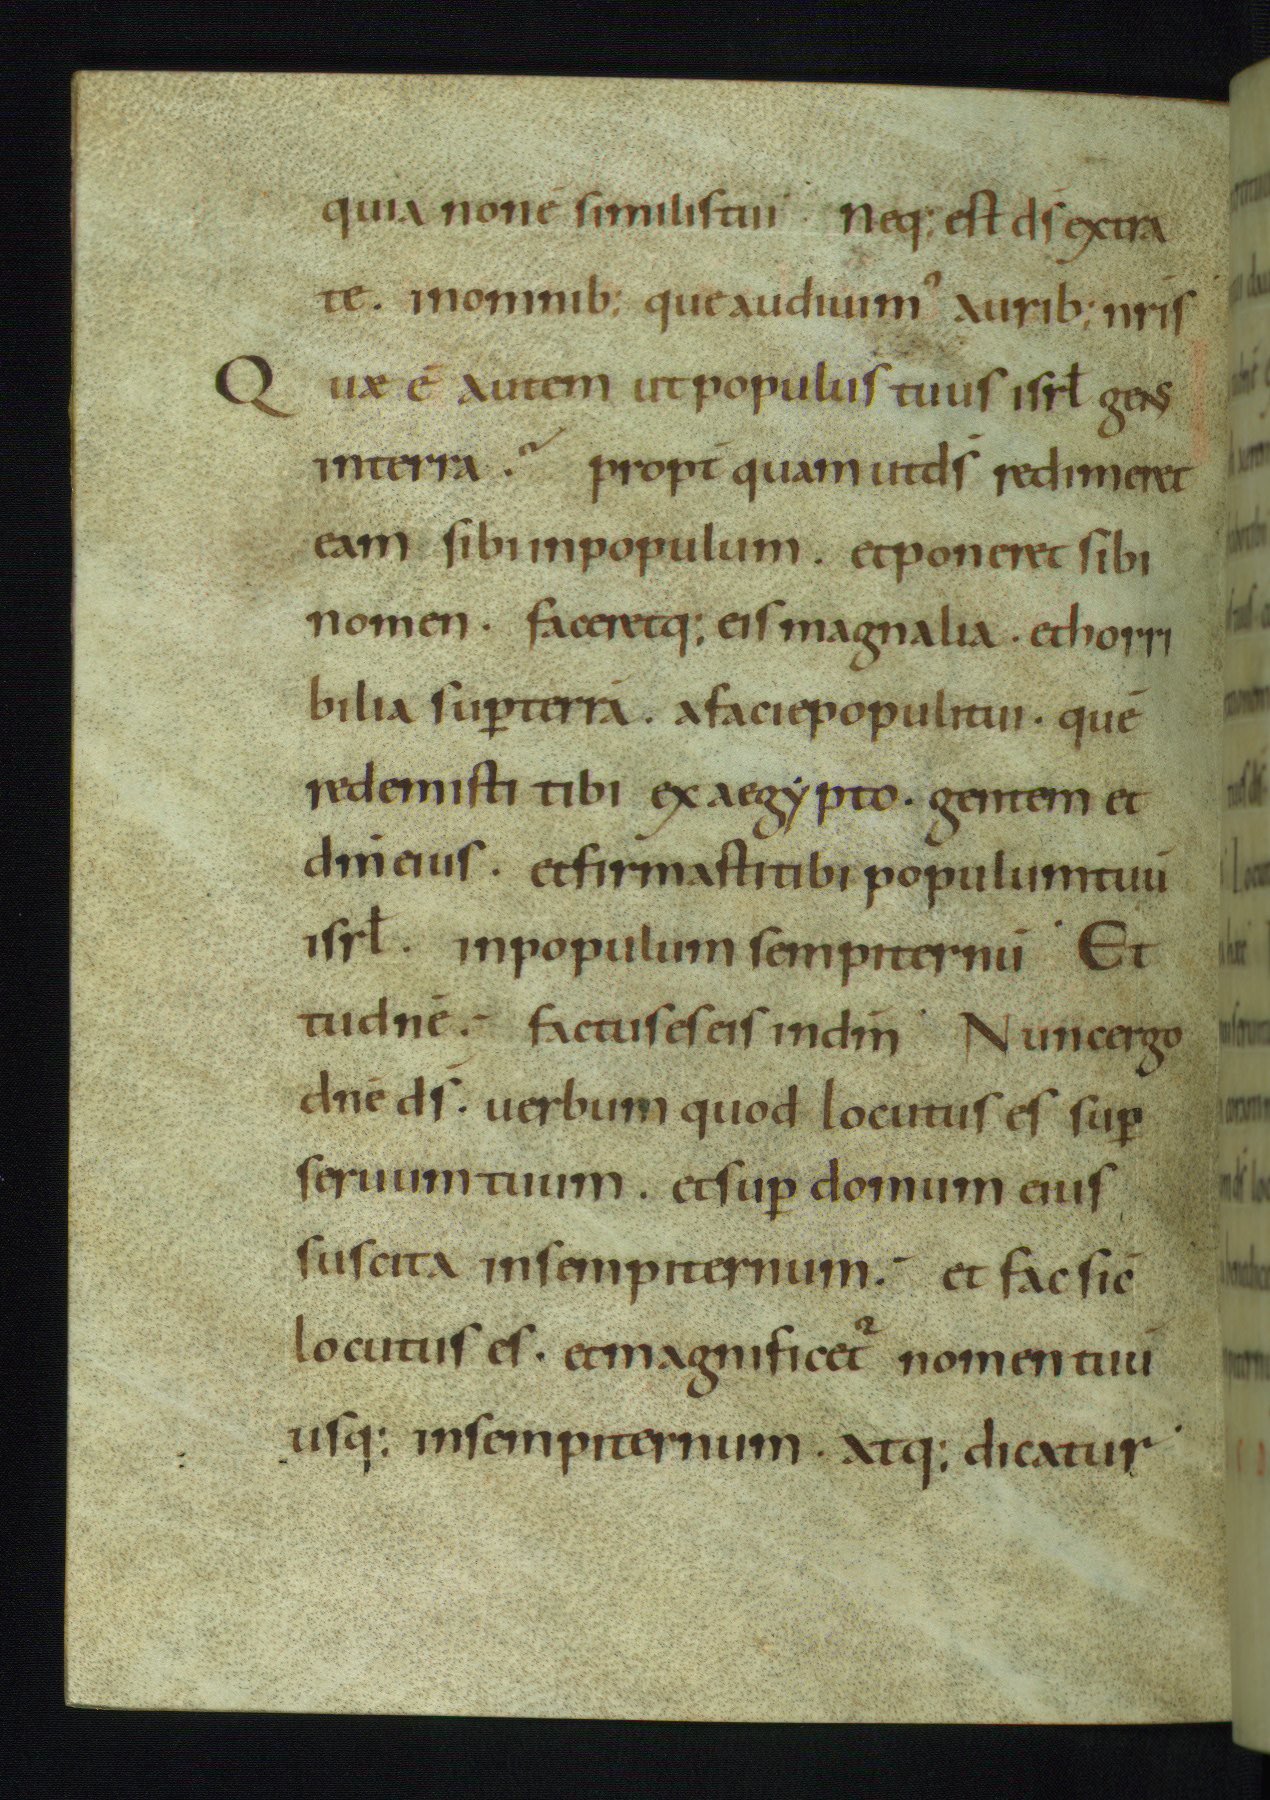 quia non ē similis tui · Neq; est ds̄ extra
te . in omnib; que audiuim᾿ aurib; nr̄is
Quæ ē autem ut populus tuus isrł gens
in terra . propt̄ quam ut ds̄ redimeret
eam sibi in populum . et poneret sibi
nomen . faceretq; eis magnalia . et horri
bilia sup̄ terrā . a facie populi tui . quē
redemisti tibi ex aegẏpto . gentem et
dm̄ eius . et firmasti tibi populum tuū
isrł . in populum sempiternū · Et
tu dn̄e . factus es eis in dm̄ · Nunc ergo
dn̄e ds̄ . uerbum quod locutus es sup̄
seruum tuum . et sup̄ domum eius
suscita in sempiternum . et fac sic̄
locutus es . et magnificet᷑ nomen tuū
usq; in sempiternum . atq; dicatur ·